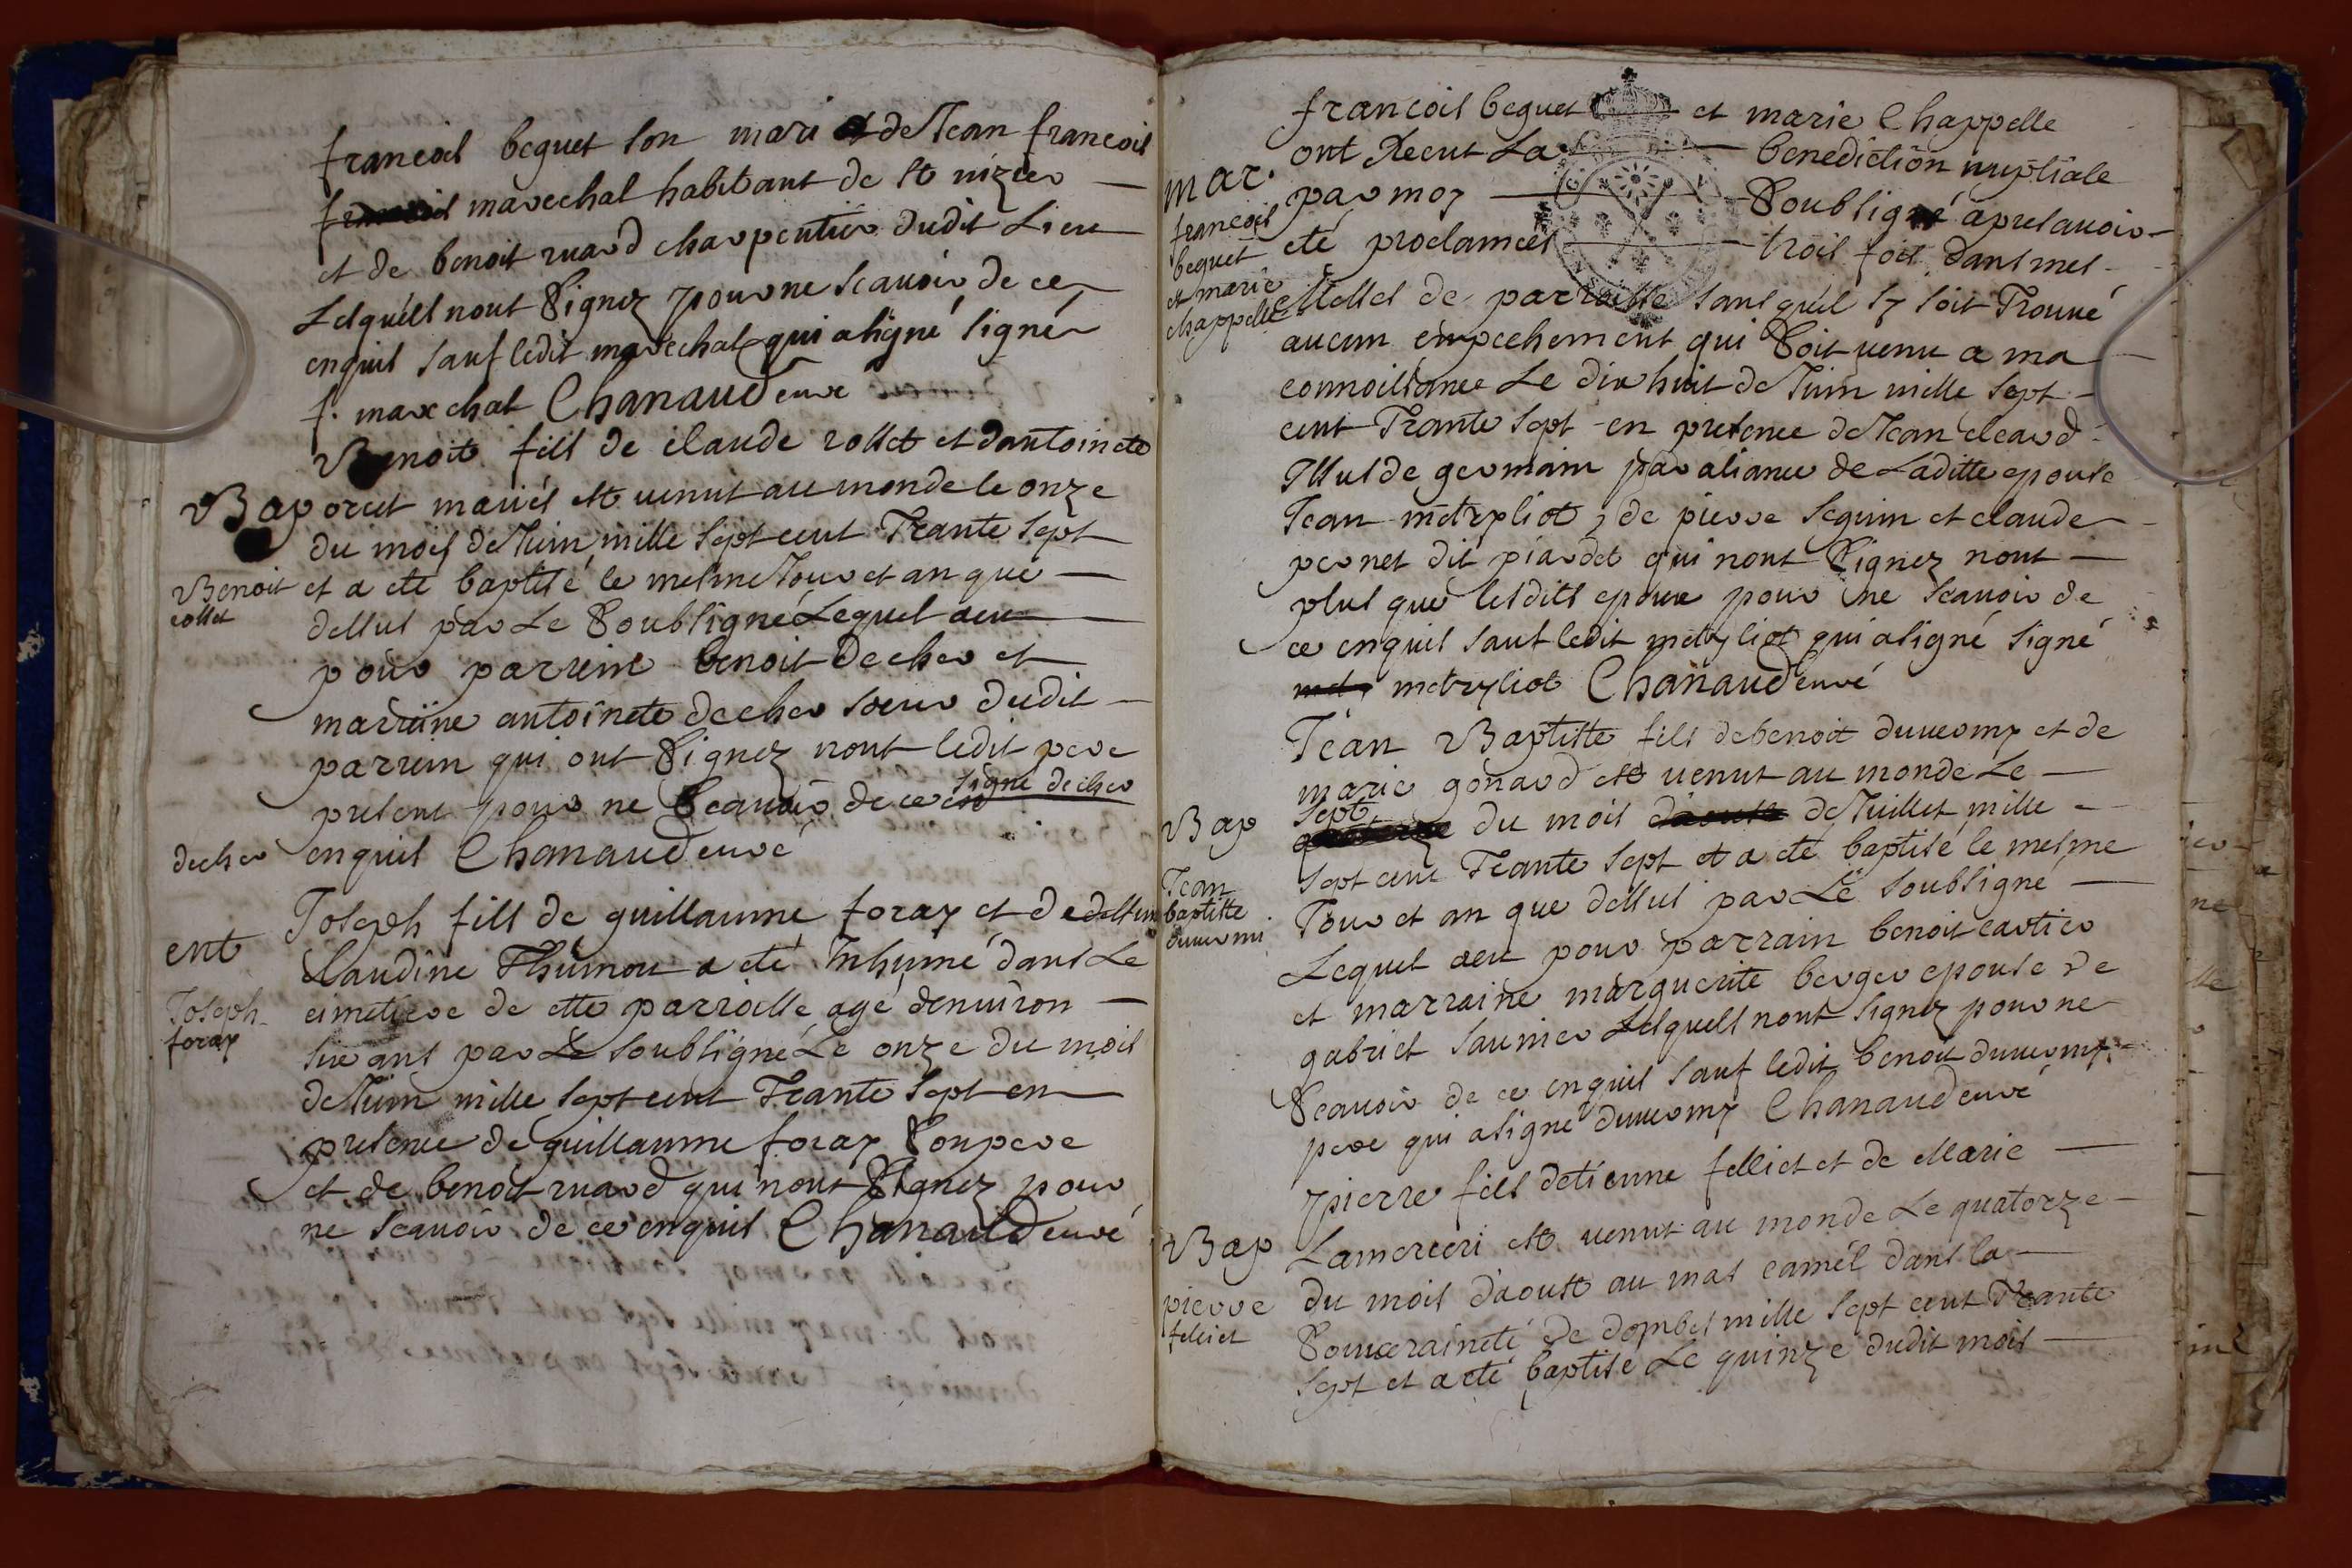 francois beguet son mari et de Jean francois
marechal habitant de st nizier
et de benoit ruard charpentier dudit Lieu
Lesquels nont Signez pour ne scavoir de ce
enquis sauf ledit marechal qui a signé signé
f. marchal Chanaudeuvé
Benoit fils de claude rollet et dantoinete
Bap
oret mariés est venut au monde le onze
du mois de Juin mille sept cent Trante sept
Benoit
rollet
et a eté baptisé le mesme Jour et an que
dessus par Le Soubsigné Lequel a eu
pour parrein benoit decher et
marreine antoinete decher soeur dudit
parrein qui ont Signez nont ledit pere
signé decher
present pour ne Scavoir de ce
decher
enquis Chanaudeuvé
Joseph fils de guillaume foray et de
ent
Claudine Thumon a eté Inhumé dans Le
cimetiere de cette parroisse agé denviron
Joseph
foray
six ans par Le soubsigné Le onze du mois
de Juin mille sept cent Trante sept en
presence de guillaume foray Son pere
et de benoit ruard qui nont Signez pour
ne scavoir de ce enquis Chanaudeuvé
francois beguet et marie Chappelle
ont Receut La benediction nuptiale
mar.
francois
beguet
et marie
chappelle
par moy Soubsigné apres avoir
eté proclamées trois fois dans mes
Messes de parroisse sans quil sy soit Trouvé
aucun empechement qui Soit venu a ma
connoissance Le dix huit de Juin mille sept
cent Trante sept en presence de Jean cleard
Issus de germain par aliance de Laditte epouse
Jean metryliot, de pierre seguin et claude
pernet dit piardet qui nont Signez nont
plus que lesdits epoux pour ne scavoir de
ce enquis sauf ledit metryliot qui a signé signé
metryliot Chanaudeuvé
Jean Baptiste fils de benoit duvernay et de
marie gonard est venut au monde Le
Bap
sept
du mois de Juillet mille
sept cent Trante sept et a eté baptisé le mesme
Jean
baptiste
Jour et an que dessus par Le soubsigné
Lequel a eu pour parrain benoit cartier
et marraine marguerite berger epouse de
gabriel saunier Lesquels nont signez pour ne
Scavoir de ce enquis sauf ledit benoit
pere qui a signé Chanaudeuvé
pierre fils detienne felliet et de Marie
Bap
Lamerceri est venut au monde Le quatorze
pierre
felliet
du mois daoust au mas camél dans la
Souveraineté de dombes mille sept cent Trante
sept et a eté baptisé Le quinze dudit mois